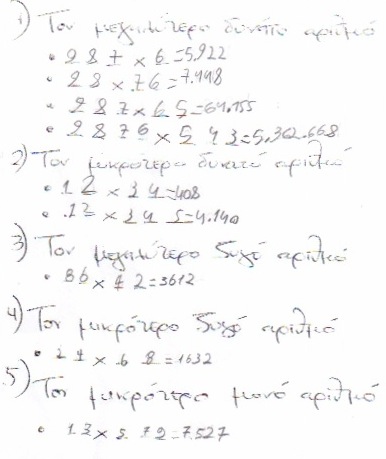 1) Τον μεγαλύτερο δυνατό αριθμό
• 987 × 6 = 5.922
• 98 × 76 = 7.448
• 987 × 65 = 64.155
• 9876 × 543 = 5.362.668
2) Τον μικρότερο δυνατό αριθμό
• 12 × 34 = 408
• 12 × 345 = 4.140
3) Τον μεγαλύτερο ζυγό αριθμό
• 86 × 42 = 3612
4) Τον μικρότερο ζυγό αριθμό
• 24 × 68 = 1632
5) Τον μικρότερο μονό αριθμό
• 13 × 579 = 7.527